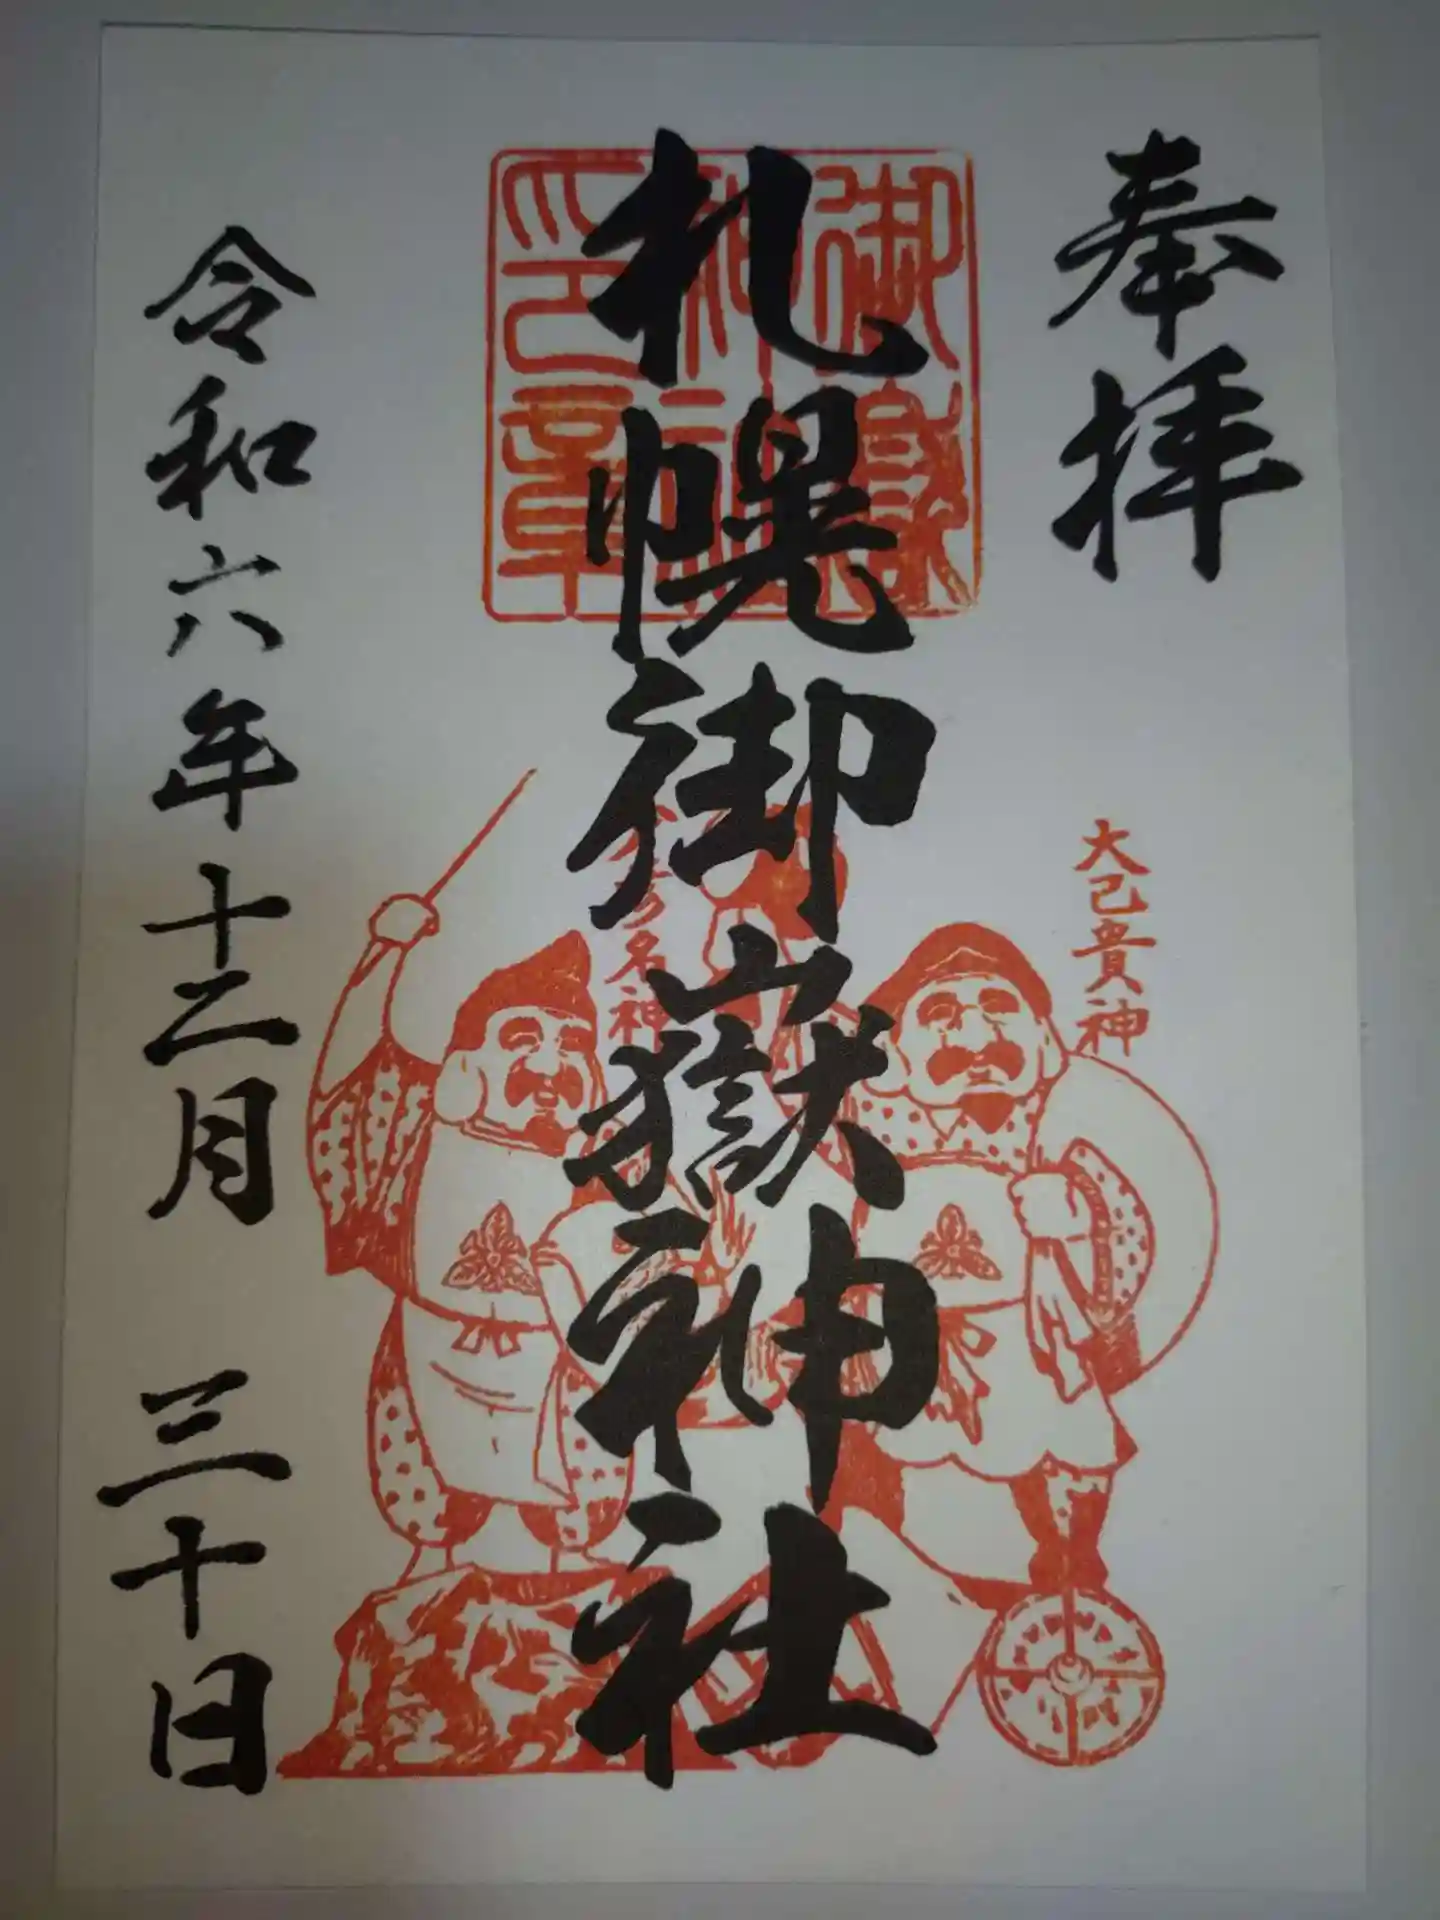 奉拝
大己貴神
札幌御嶽神社
御嶽
神社
印章
名神
令和六年十二月 三十日